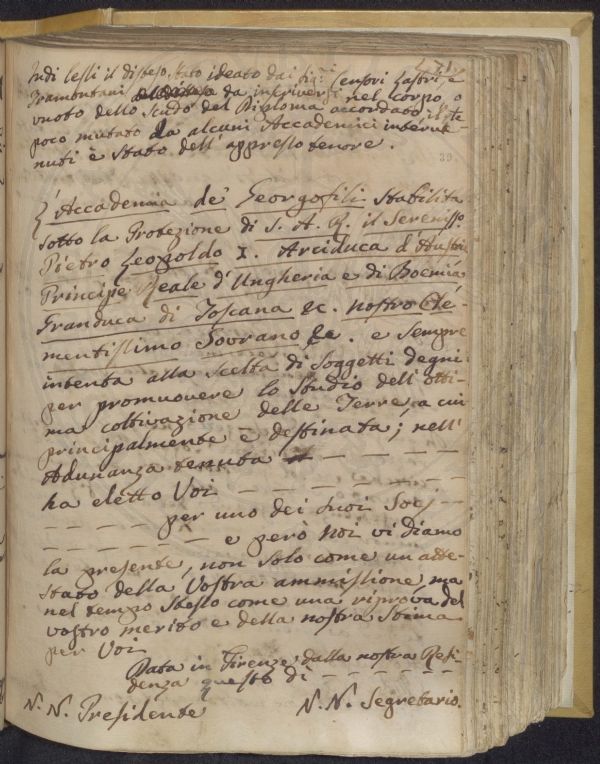 Indi lessi il disteso, stato ideato dai Sigri Censori Lastri e
Tramontani da inscriversi nel corpo, o
vuoto dello Scudo del Diploma accordato, il
poco mutato da alcuni Accademici interve-
nuti è stato dell'appresso tenore.
39
L'Accademia de' Georgofili stabilita
sotto la Protezione di S. A. R. il Serenisso.
Pietro Leopoldo I. Arciduca d'Austria
Principe Reale d'Ungheria e di Boemia
Granduca di Toscana &c. nostro Cle-
mentissimo Sovrano &c. e sempre
intenta alla scelta di Soggetti degni
per promuovere lo Studio dell'otti-
ma coltivazione delle Terre, a cui
principalmente è destinata; nell'
Adunanza tenuta — — — — —
ha eletto Voi — — — — — —
— — — per uno dei suoi Socj — —
— — — — — e però Noi vi diamo
la presente, non solo come un atte-
stato della Vostra ammissione, ma
nel tempo stesso come una riprova del
vostro merito e della nostra Stima
per Voi
Data in Firenze, dalla nostra Resi-
denza questo dì — — — — — —
N. N. Presidente N. N. Segretario.